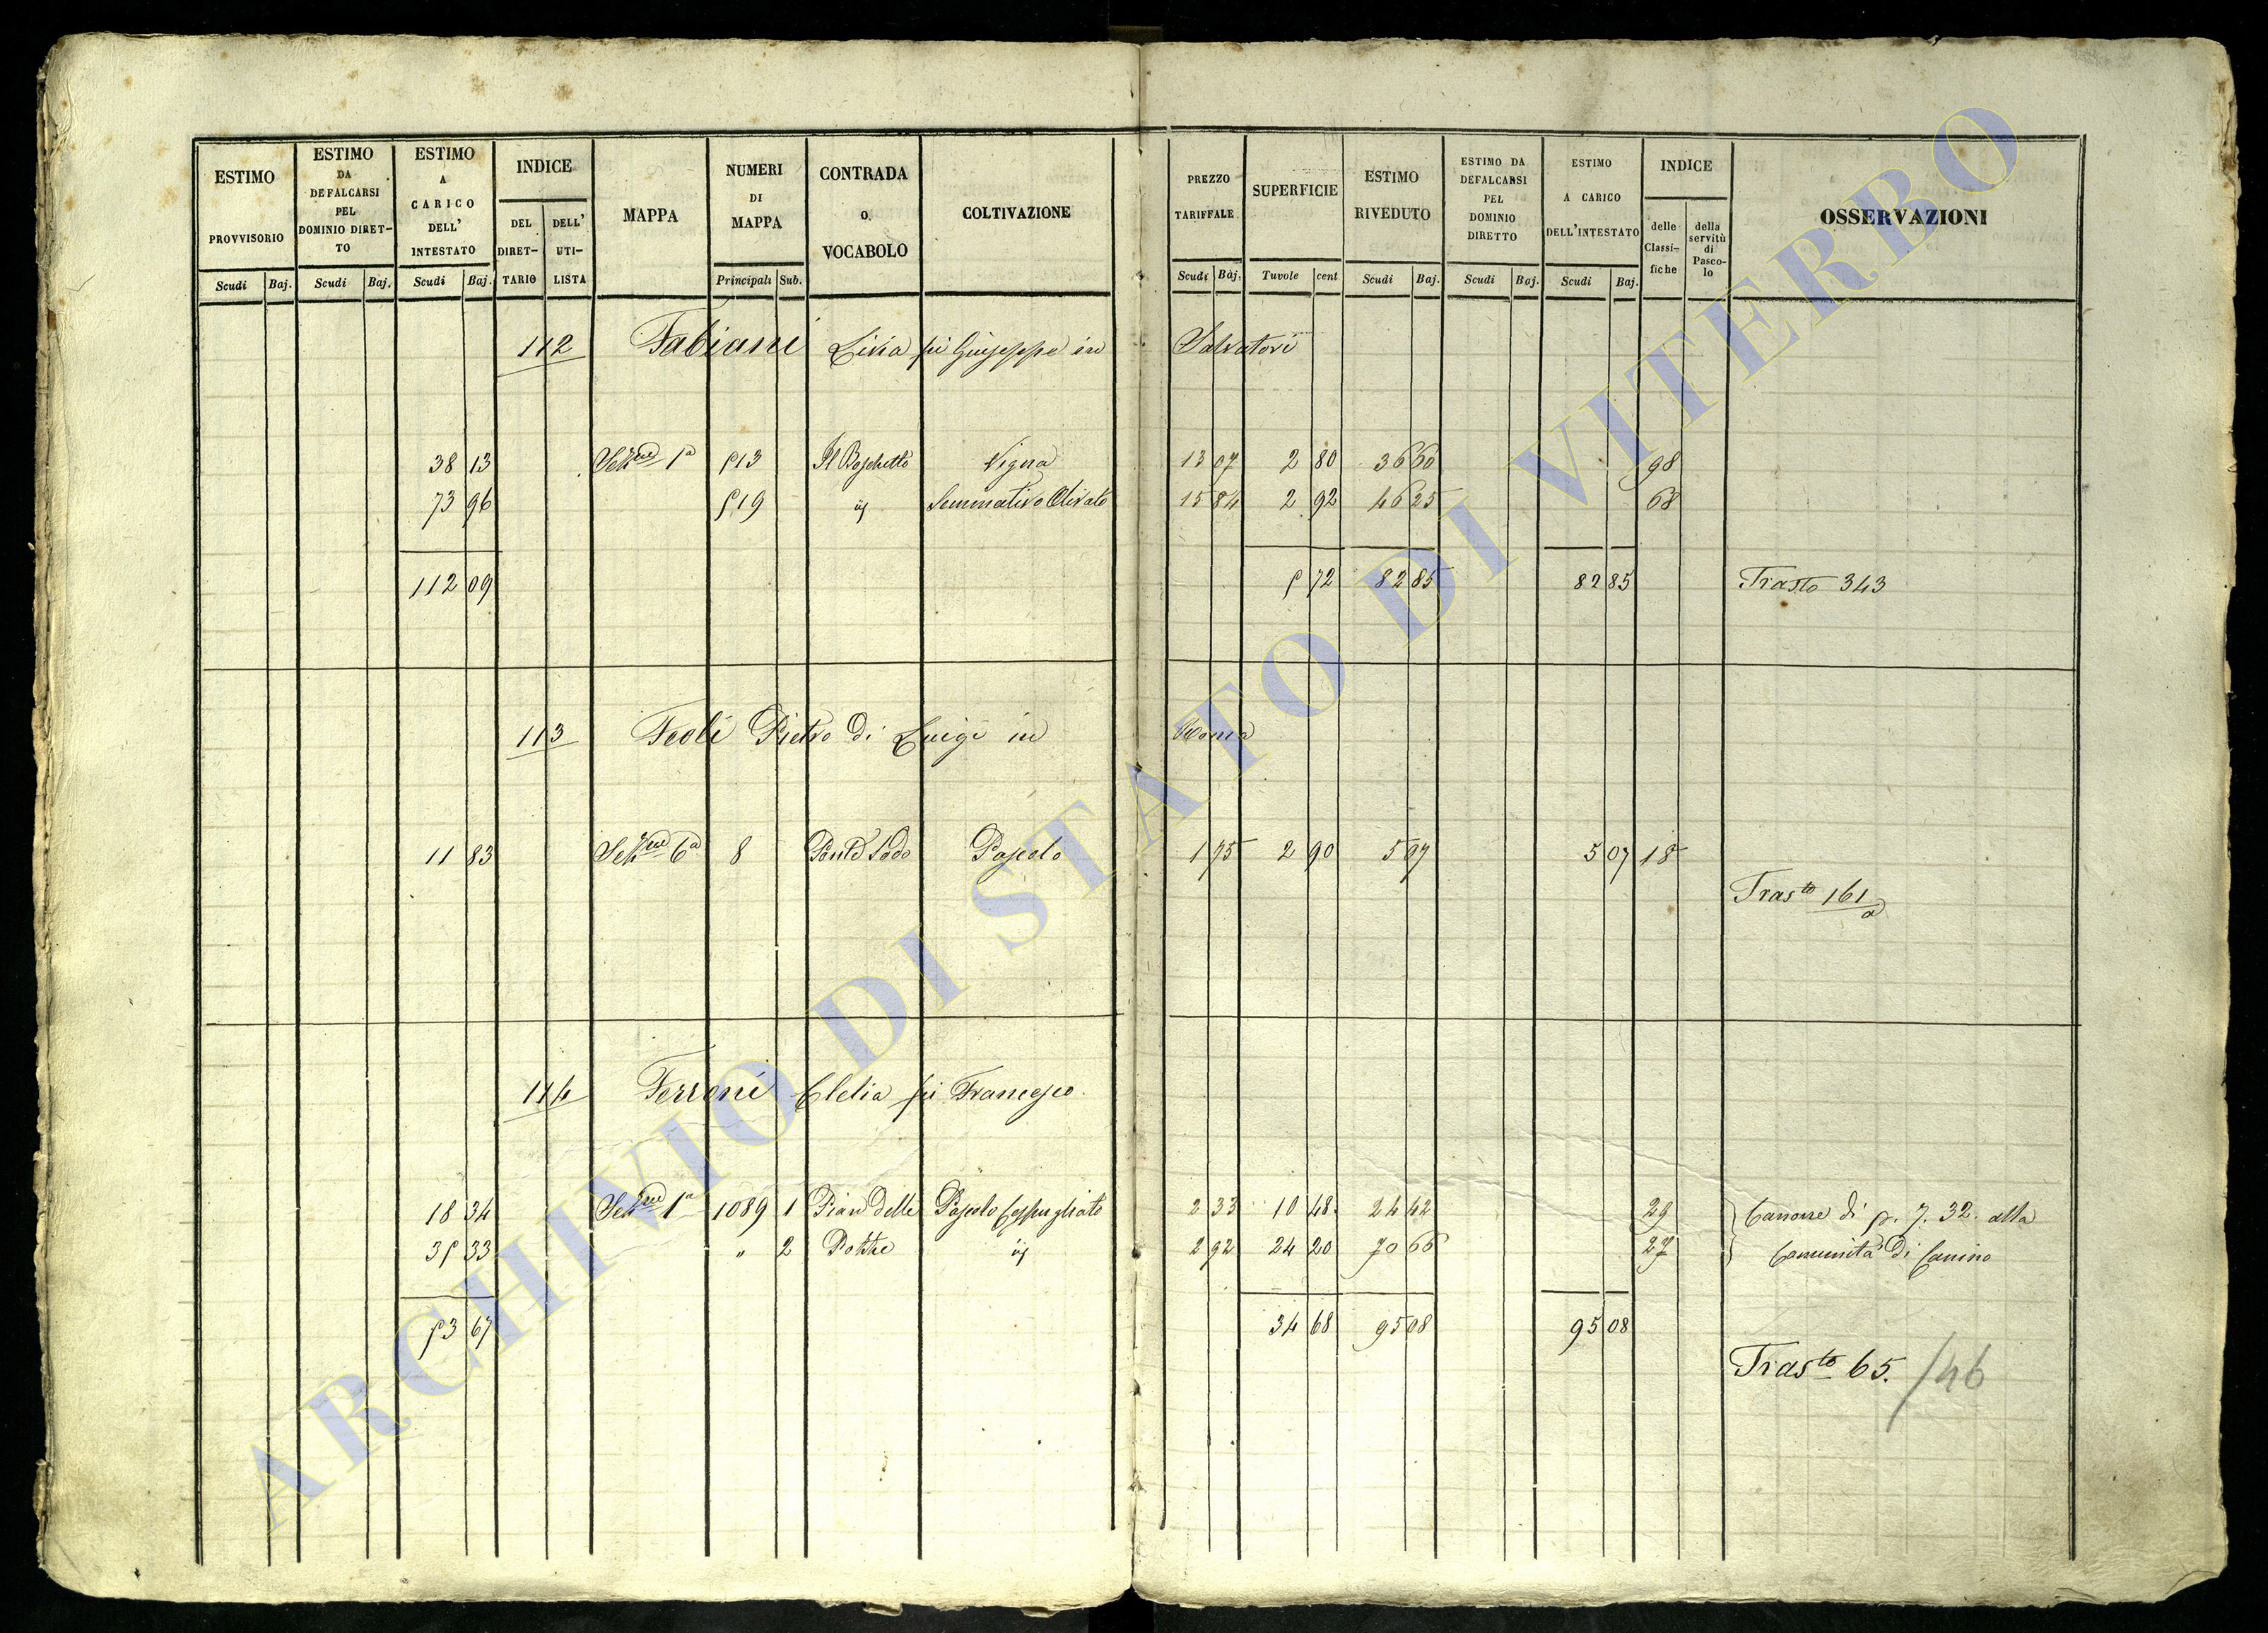 ESTIMO PROVVISORIO Scudi Baj.
ESTIMO DA DEFALCARSI PEL DOMINIO DIRET-TO Scudi Baj.
ESTIMO A CARICO DELL' INTESTATO Scudi Baj.
INDICE DEL DIRET-TARIO DELL' UTI-LISTA
MAPPA
NUMERI DI MAPPA Principali Sub.
CONTRADA O. VOCABOLO
COLTIVAZIONE
PREZZO TARIFFALE Scudi Baj.
SUPERFICIE Tavole cent
ESTIMO RIVEDUTO Scudi Baj.
ESTIMO DA DEFALCARSI PEL DOMINIO DIRETTO Scudi Baj.
ESTIMO A CARICO DELL'INTESTATO Scudi Baj.
INDICE delle Classi-fiche della servitù di Pasco-lo
OSSERVAZIONI
112 Fabiani Livia fu Giuseppe in Salvatori
38 13 Sezne 1a 513 Il Boschetto Vigna 13 07 2 80 36 60 98
73 96 519 id Seminativo Olivato 15 84 2 92 46 25 68
112 09 5 72 82 85 82 85 Trasto 343
113 Feoli Pietro di Luigi in Roma
11 83 Sezne 6a 8 Ponte Sodo Pascolo 1 75 2 90 5 07 5 07 18
Trasto 161/a
114 Ferroni Clelia fu Francesco.
18 34 Sezne 1a 1089 1 Pian delle Pascolo Cespugliato 2 33 10 48. 24 42 29 Canone di s. 7. 32. alla
35 33 " 2 id 2 92 24 20 70 66 27 Comunità di Canino
53 67 34 68 95 08 95 08
Trasto 65. /46
ARCHIVIO DI STATO DI VITERBO